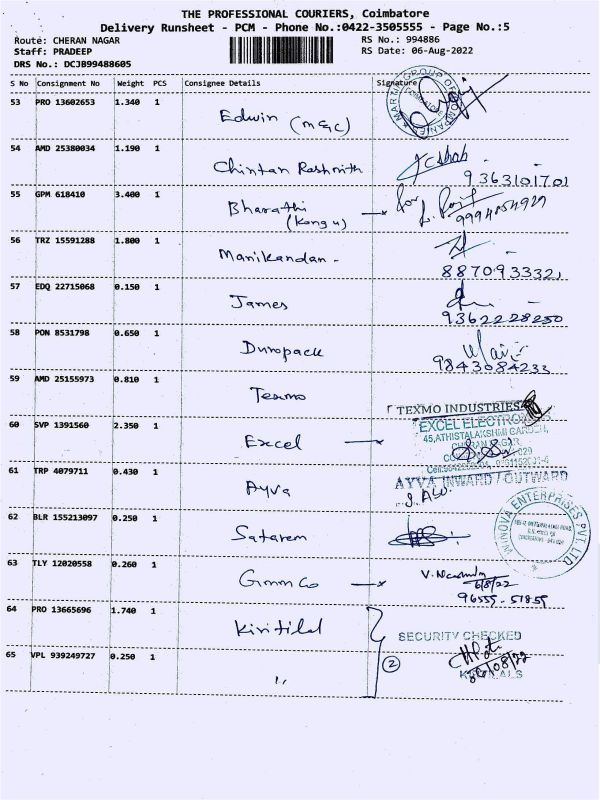 THE PROFESSIONAL COURIERS, Coimbatore
Delivery Runsheet - PCM - Phone No.:0422-3505555 - Page No.:5
Route: CHERAN NAGAR RS No.: 994886
Staff: PRADEEP RS Date: 06-Aug-2022
DRS No.: DCJB99488605
S No Consignment No Weight PCS Consignee Details Signature
53 PRO 13602653 1.340 1 Edwin (MGC)
54 AMD 25380034 1.190 1 Chintan Rashmith
9363101701
55 GPM 618410 3.400 1 Bharathi
(Kongu)
56 TRZ 15591288 1.800 1 Manikandan -
8870933321
57 EDQ 22715068 0.150 1 James
9362228250
58 PON 8531798 0.650 1 Duropack
9843084233
59 AMD 25155973 0.810 1 Texmo
TEXMO INDUSTRIES
60 SVP 1391560 2.350 1 Excel
EXCEL ELECTRO
45,ATHISTALAKSHMI GARDEN,
61 TRP 4079711 0.430 1 Ayva
AYVA INWARD / OUTWARD
62 BLR 155213097 0.250 1 Satarem
ENTERPRISES PVT. LTD
63 TLY 12020558 0.260 1 Gmmco
6/8/22
96555-51855
64 PRO 13665696 1.740 1 Kiritilal
SECURITY CHECKED
65 VPL 939249727 0.250 1 "
2
06/08/22